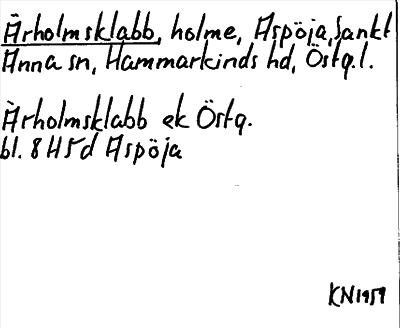 Ärholmsklabb, holme, Aspöja, Sankt
Anna sn, Hammarkinds hd, Östg.l.
Ärholmsklabb ek Östg.
bl. 8 H5d Aspöja
KN1959